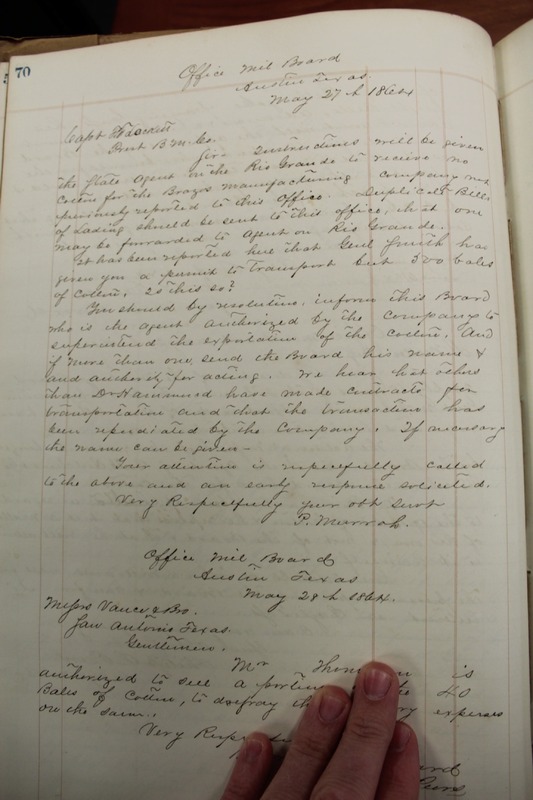 70
Office Mil Board
Austin Texas.
May 27th 1864
Capt
Prest B. M. Co.
Sir. Instructions will be given
the State Agent on the Rio Grande to receive no
Cotton for the Brazos Manufacturing Company not
previously reported to this Office. Duplicate Bills
of Lading should be sent to this office, that one
may be forwarded to Agent on Rio Grande.
It has been reported here that Genl Smith has
given you a permit to transport but 500 bales
of Cotton, is this so?
You should by resolution, inform this Board
who is the agent authorized by the Company to
superintend the exportation of the cotton. And
if more than one, send the Board his name &
and authority for acting. We hear that others
than Dr Hammond have made contracts for
transportation and that the transaction has
been repudiated by the Company. If necessary
the name can be given—
Your attention is respectfully called
to the above and an early response solicited.
Very Respectfully your obt Servt
P. Murrah.
Office Mil Board
Austin Texas
May 28th 1864.
Messrs Vance & Bro.
San Antonio Texas.
Gentlemen.
Mr is
authorized to sell a portion 40
Bales of Cotton, to defray expenses
on the same.
Very